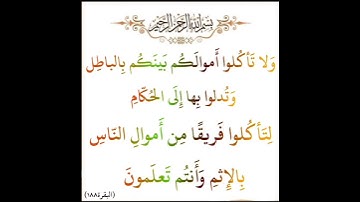 بسم الله الرحمن الرحيم
وَلا تَأكُلوا أَموالَكُم بَينَكُم بِالباطِلِ
وَتُدلوا بِها إِلَى الحُكّامِ
لِتَأكُلوا فَريقًا مِن أَموالِ النّاسِ
بِالإِثمِ وَأَنتُم تَعلَمونَ
(البقرة١٨٨)